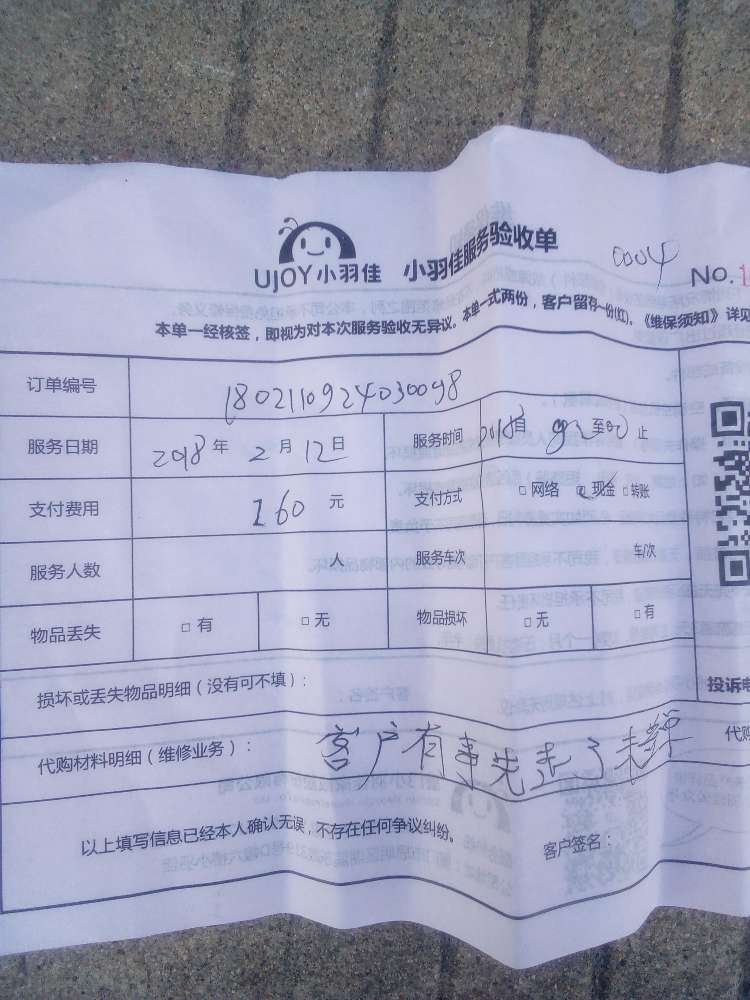 UJOY小羽佳 小羽佳服务验收单 0004 NO.1
本单一经核签，即视为对本次服务验收无异议。本单一式两份，客户留存一份(红)。《维保须知》详见
订单编号 1802110924030098
服务日期 2018年2月12日 服务时间 自 至 止
支付费用 160元 支付方式 □网络 ☑现金 □转账
服务人数 人 服务车次 车/次
物品丢失 □有 □无 物品损坏 □无 □有
损坏或丢失物品明细（没有可不填）： 投诉电
代购材料明细（维修业务）： 客户有事先走了未签单 代购
以上填写信息已经本人确认无误，不存在任何争议纠纷。 客户签名：